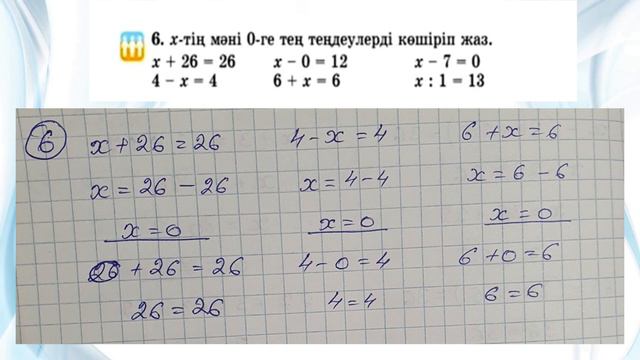 6. x-тің мәні 0-ге тең теңдеулерді көшіріп жаз.
x + 26 = 26 x − 0 = 12 x − 7 = 0
4 − x = 4 6 + x = 6 x : 1 = 13
6 x + 26 = 26 4 - x = 4 6 + x = 6
x = 26 - 26 x = 4 - 4 x = 6 - 6
x = 0 x = 0 x = 0
+ 26 = 26 4 - 0 = 4 6 + 0 = 6
26 = 26 4 = 4 6 = 6